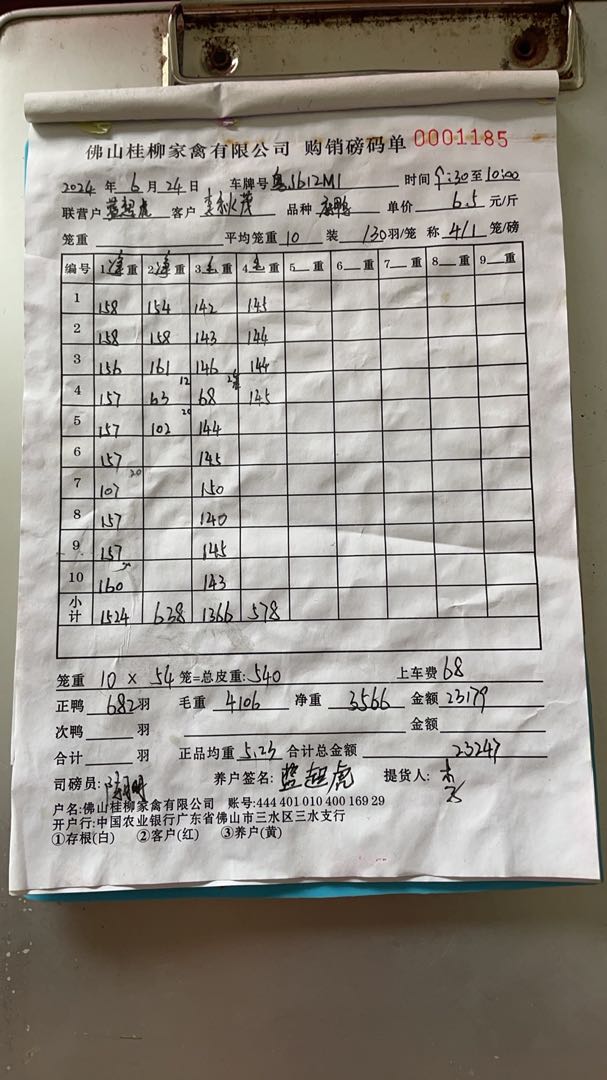 佛山桂柳家禽有限公司 购销磅码单 0001185
2024 年 6 月 24 日 车牌号 粤J612M1 时间 9:30 至 10:00
联营户 蓝超虎 客户 李秋茂 品种 单价 6.5 元/斤
笼重 平均笼重 10 装 130 羽/笼 称 4/1 笼/磅
编号 1 重 2 重 3 毛 重 4 毛 重 5 重 6 重 7 重 8 重 9 重
1 158 154 142 145
2 158 158 143 144
3 156 161 146 144
4 157 63 12 68 145
5 157 102 20 144
6 157 145
7 107 20 150
8 157 140
9 157 145
10 160 143
小计 1524 638 1366 578
笼重 10 × 54 笼=总皮重: 540 上车费 68
正鸭 682 羽 毛重 4106 净重 3566 金额 23179
次鸭 羽 金额
合计 羽 正品均重 5.23 合计总金额 23247
司磅员: 养户签名: 蓝超虎 提货人:
户名:佛山桂柳家禽有限公司 账号:444 401 010 400 169 29
开户行:中国农业银行广东省佛山市三水区三水支行
①存根(白) ②客户(红) ③养户(黄)